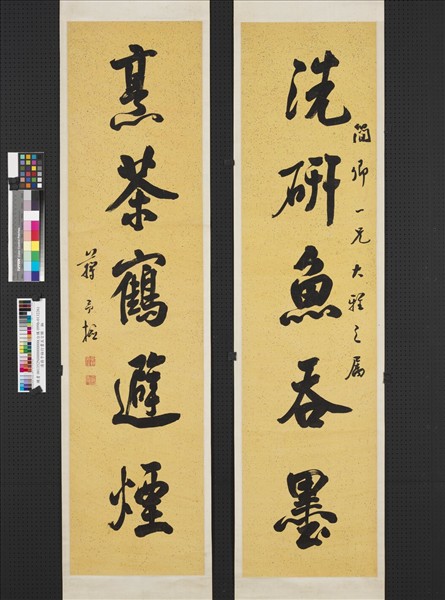 洗研魚吞墨
簡卿一兄大雅之屬
烹茶鶴避煙
蔣予檢